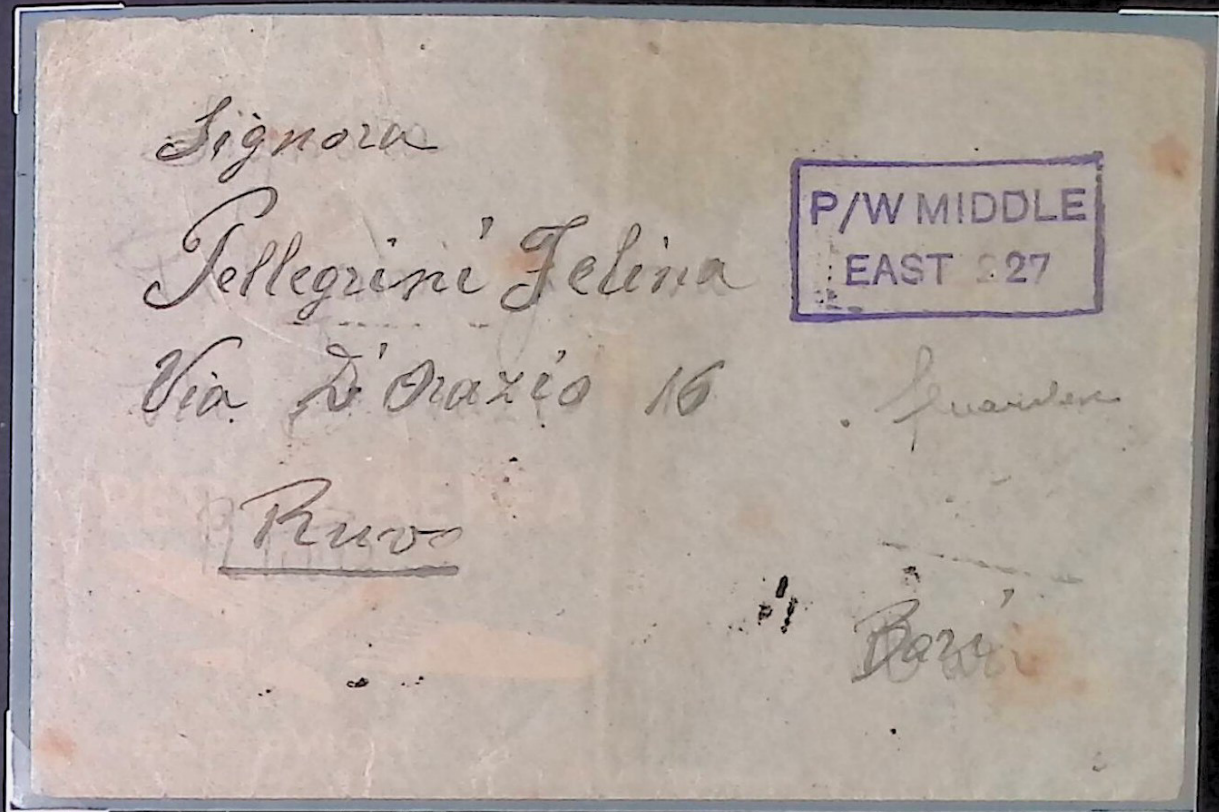 Signora
Pellegrini Felina
Via D'Orazio 16
Ruvo
Bari
P/W MIDDLE
EAST 227